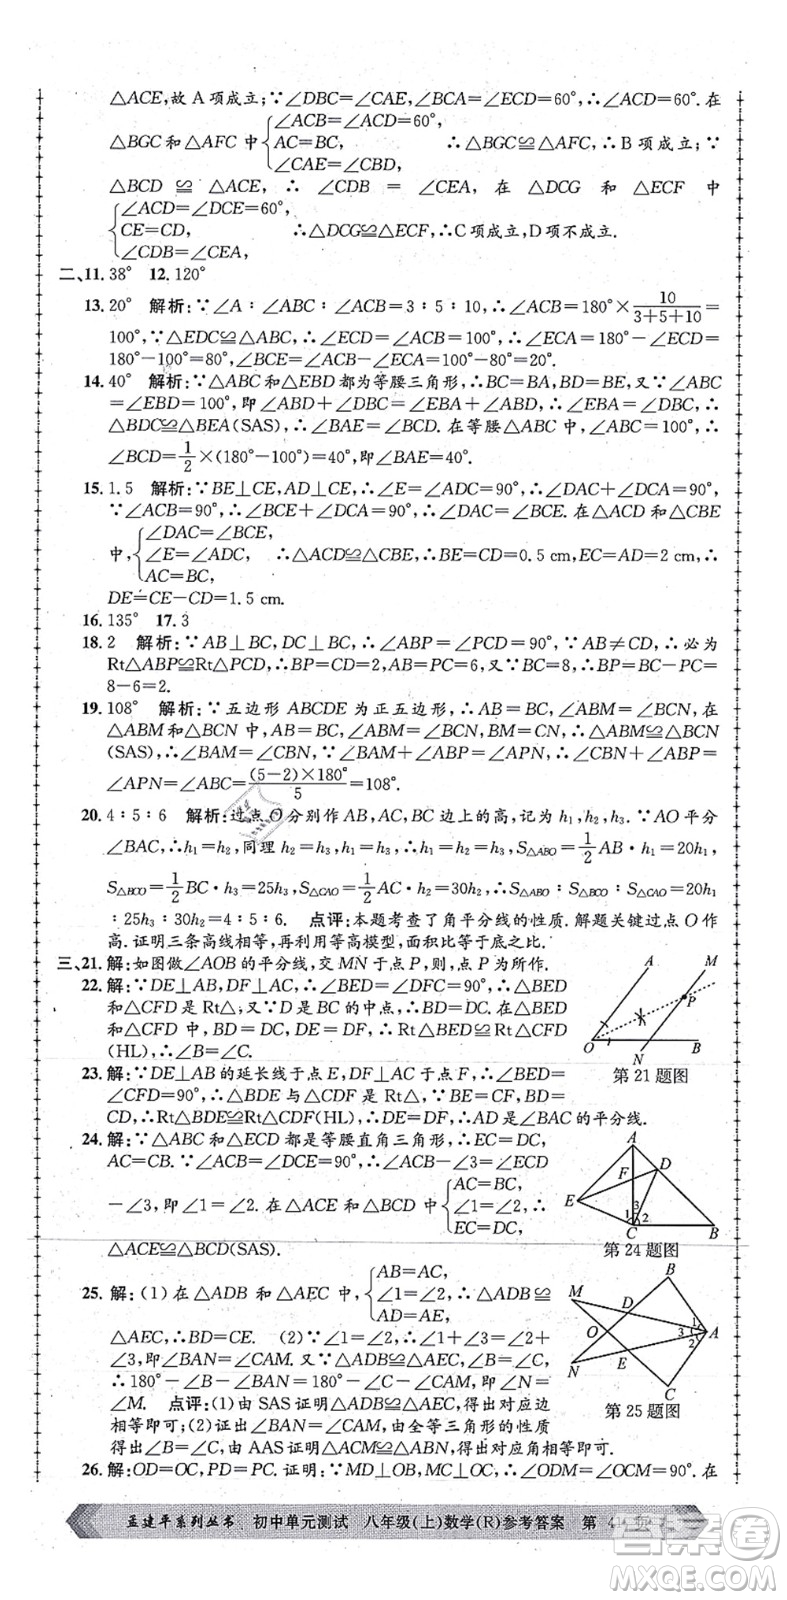 △ACE,故A项成立;∵∠DBC=∠CAE,∠BCA=∠ECD=60°,∴∠ACD=60°.在
△BGC和△AFC中{∠ACB=∠ACD=60°, AC=BC, ∠CAE=∠CBD, ∴△BGC≌△AFC,∴B项成立;∵
△BCD≌△ACE,∴∠CDB=∠CEA,在△DCG和△ECF中
{∠ACD=∠DCE=60°, CE=CD, ∠CDB=∠CEA, ∴△DCG≌△ECF,∴C项成立,D项不成立.
二、11. 38° 12. 120°
13. 20° 解析:∵∠A∶∠ABC∶∠ACB=3∶5∶10,∴∠ACB=180°×10/(3+5+10)=
100°,∵△EDC≌△ABC,∴∠ECD=∠ACB=100°,∴∠BCD=180°-∠ECD=
180°-100°=80°,∠BCE=∠ACB-∠BCD=100°-80°=20°.
14. 40° 解析:∵△ABC和△EBD都为等腰三角形,∴BC=BA,BD=BE,又∵∠ABC
=∠EBD=100°,即∠ABD+∠DBC=∠EBA+∠ABD,∴∠EBA=∠DBC,∴
△BDC≌△BEA(SAS),∴∠BAE=∠BCD.在等腰△ABC中,∠ABC=100°,∴
∠BCD=1/2×(180°-100°)=40°,即∠BAE=40°.
15. 1.5 解析:∵BE⊥CE,AD⊥CE,∴∠E=∠ADC=90°,∴∠DAC+∠DCA=90°,
∵∠ACB=90°,∴∠BCE+∠DCA=90°,∴∠DAC=∠BCE.在△ACD和△CBE
中,{∠DAC=∠BCE, ∠E=∠ADC, AC=BC, ∴△ACD≌△CBE,∴BE=CD=0.5 cm,EC=AD=2 cm,∴
DE=CE-CD=1.5 cm.
16. 135° 17. 3
18. 2 解析:∵AB⊥BC,DC⊥BC,∴∠ABP=∠PCD=90°,∵AB≠CD,∴必为
Rt△ABP≌Rt△PCD,∴BP=CD=2,AB=CP=6.又∵BC=8,∴BP=BC-PC=
8-6=2.
19. 108° 解析:∵五边形ABCDE为正五边形,∴AB=BC,∠ABM=∠BCN,在
△ABM和△BCN中,AB=BC,∠ABM=∠BCN,BM=CN,∴△ABM≌△BCN
(SAS),∴∠BAM=∠CBN,∵∠BAM+∠ABP=∠APN,∴∠CBN+∠ABP=
∠APN=∠ABC=(5-2)×180°/5=108°.
20. 4∶5∶6 解析:过点O分别作AB,AC,BC边上的高,记为h₁,h₂,h₃.∵AO平分
∠BAC,∴h₁=h₂,同理h₂=h₃,h₁=h₃,∴h₁=h₂=h₃,S△ABO=1/2AB·h₁=20h₁,
S△BCO=1/2BC·h₃=25h₃,S△CAO=1/2AC·h₂=30h₂,∴S△ABO∶S△BCO∶S△CAO=20h₁
∶25h₃∶30h₂=4∶5∶6. 点评:本题考查了角平分线的性质.解题关键过点O作
高.证明三条高线相等,再利用等高模型,面积比等于底之比.
三、21. 解:如图做∠AOB的平分线,交MN于点P,则,点P为所作.
22. 解:∵DE⊥AB,DF⊥AC,∴∠BED=∠DFC=90°,∴△BED
和△CFD是Rt△,又∵D是BC的中点,∴BD=DC,在△BED
和△CFD中,BD=DC,BE=CF,∴Rt△BED≌Rt△CFD
(HL),∴∠B=∠C.
A M P O N B
第21题图
23. 解:∵DE⊥AB的延长线于点E,DF⊥AC于点F,∴∠BED=
∠CFD=90°,∴△BDE与△CDF是直角三角形,∵BE=CF,BD=
CD,∴Rt△BDE≌Rt△CDF(HL),∴DE=DF,∴AD是∠BAC的平分线.
24. 解:∵△ABC和△ECD都是等腰直角三角形,∴EC=DC,
AC=CB.∵∠ACB=∠DCE=90°,∴∠ACB-∠3=∠ECD
-∠3,即∠1=∠2.在△ACE和△BCD中{AC=BC, ∠1=∠2, EC=DC, ∴
△ACE≌△BCD(SAS).
A F D E 1 3 2 C B
第24题图
25. 解:(1)在△ADB和△AEC中,{AB=AC, ∠1=∠2, AD=AE, ∴△ADB≌
△AEC,∴BD=CE. (2)∵∠1=∠2,∴∠1+∠3=∠2
+∠3,即∠BAN=∠CAM.∵△ADB≌△AEC,∴∠B=∠C,
∴180°-∠B-∠BAN=180°-∠C-∠CAM,即∠N=
∠M. 点评:(1)由SAS证明△ABD≌△ACE,得出对应边
相等即可;(2)证出∠BAN=∠CAM,由全等三角形的性质
得出∠B=∠C,由AAS证明△ACM≌△ABN,得出对应角相等即可.
B M D 1 O 3 A 2 E N C
第25题图
26. 解:OD=OC,PD=PC.证明:∵MD⊥OB,MC⊥OA,∴∠MDO=∠MCO=90°,在
孟建平系列丛书 初中单元测试 八年级(上)数学(R)参考答案 第4
作业精灵
MXQE.COM